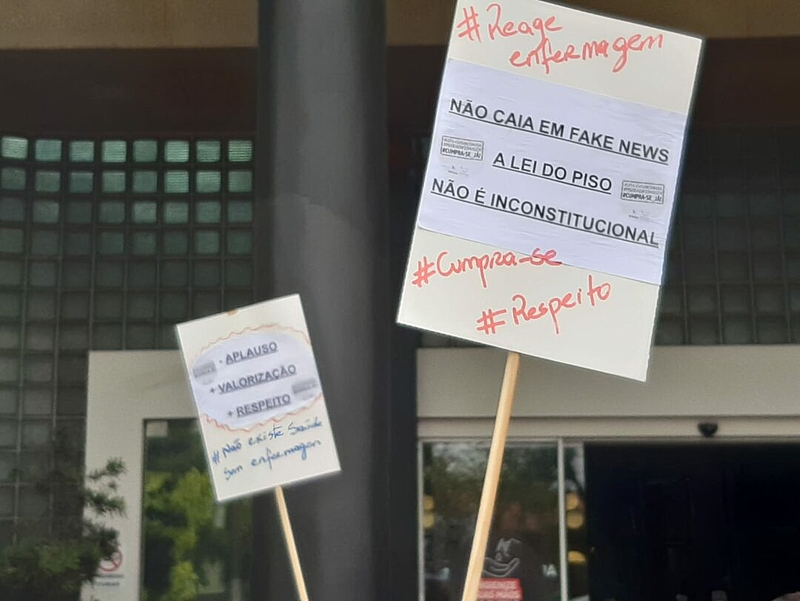 #Reage
enfermagem
NÃO CAIA EM FAKE NEWS
A LEI DO PISO
#CUMPRA-SE JÁ!
#CUMPRA-SE JÁ!
NÃO É INCONSTITUCIONAL
#Cumpra-se
#Respeito
- APLAUSO
+ VALORIZAÇÃO
+ RESPEITO
#Não existe Saúde
sem enfermagem